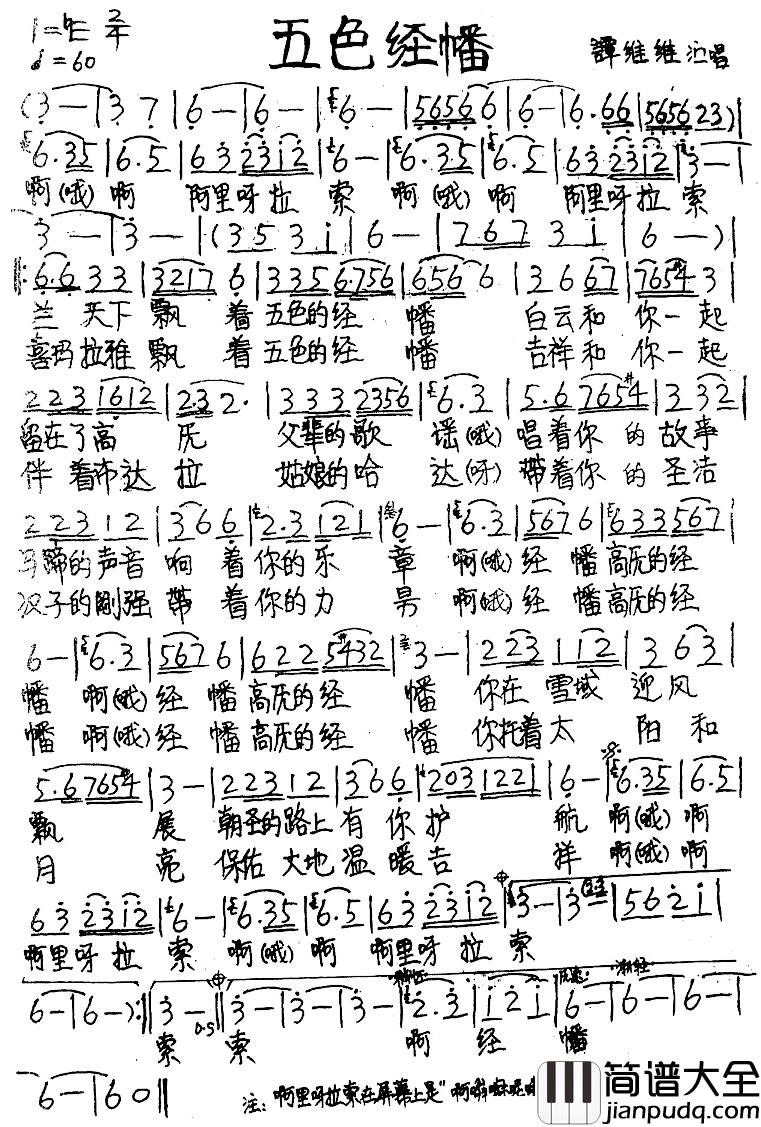 1=♭E 2/4
♩=60
五色经幡
谭维维 演唱
(3 — | 3 7 | 6 — | 6 — | 6 — | 5656 6 | 6 — | 6.66 | 5656 23) |
6.35 | 6.5 | 63 2312 | 6 — | 6.35 | 6.5 | 63 2312 | 3 — |
啊(哦)啊 阿里呀拉 索 啊(哦)啊 阿里呀拉 索
3 — | 3 — | (35 3i | 6 — | 767 3i | 6 — ) |
6.6 33 | 3217 6 | 335 6756 | 656 6 | 36 67 | 7654 3 |
兰天下飘 着五色的经 幡 白云和 你一起
喜玛拉雅飘 着五色的经 幡 吉祥和 你一起
223 1612 | 23 2. | 333 2356 | 6.3 | 5.6 7654 | 3 32 |
留在了高 厡 父辈的歌 谣(哦) 唱着你 的故事
伴着布达 拉 姑娘的哈 达(呀) 带着你 的圣洁
223 12 | 36 6 | 2.3 121 | 6 — | 6.3 | 567 6 | 633 567 |
马蹄的声音 响 着你的乐 章 啊(哦)经 幡高厡的经
汉子的刚强 带 着你的力 量 啊(哦)经 幡高厡的经
6 — | 6.3 | 567 6 | 622 5432 | 3 — | 223 112 | 3 63 |
幡 啊(哦)经 幡高厡的经 幡 你在 雪域 迎风
幡 啊(哦)经 幡高厡的经 幡 你托着太 阳和
5.6 7654 | 3 — | 223 12 | 36 6 | 203 122 | 6 — | 6.35 | 6.5 |
飘 展 朝圣的路上有你护 航 啊(哦)啊
月 亮 保佑大地温暖吉 祥 啊(哦)啊
63 2312 | 6 — | 6.35 | 6.5 | 63 2312 | 3 — | 3 — | 562i |
啊里呀拉 索 啊(哦)啊 啊里呀拉 索
6 — | 6 — ) :‖ 3 — ‖ 3 — | 3 — | 3 — | 2.3 | i2i | 6 — | 6 — | 6 — |
索 D.S 索 啊 经 幡
6 — | 60 ‖
注:啊里呀拉索在屏幕上是"啊
简谱大全
jianpudq.com